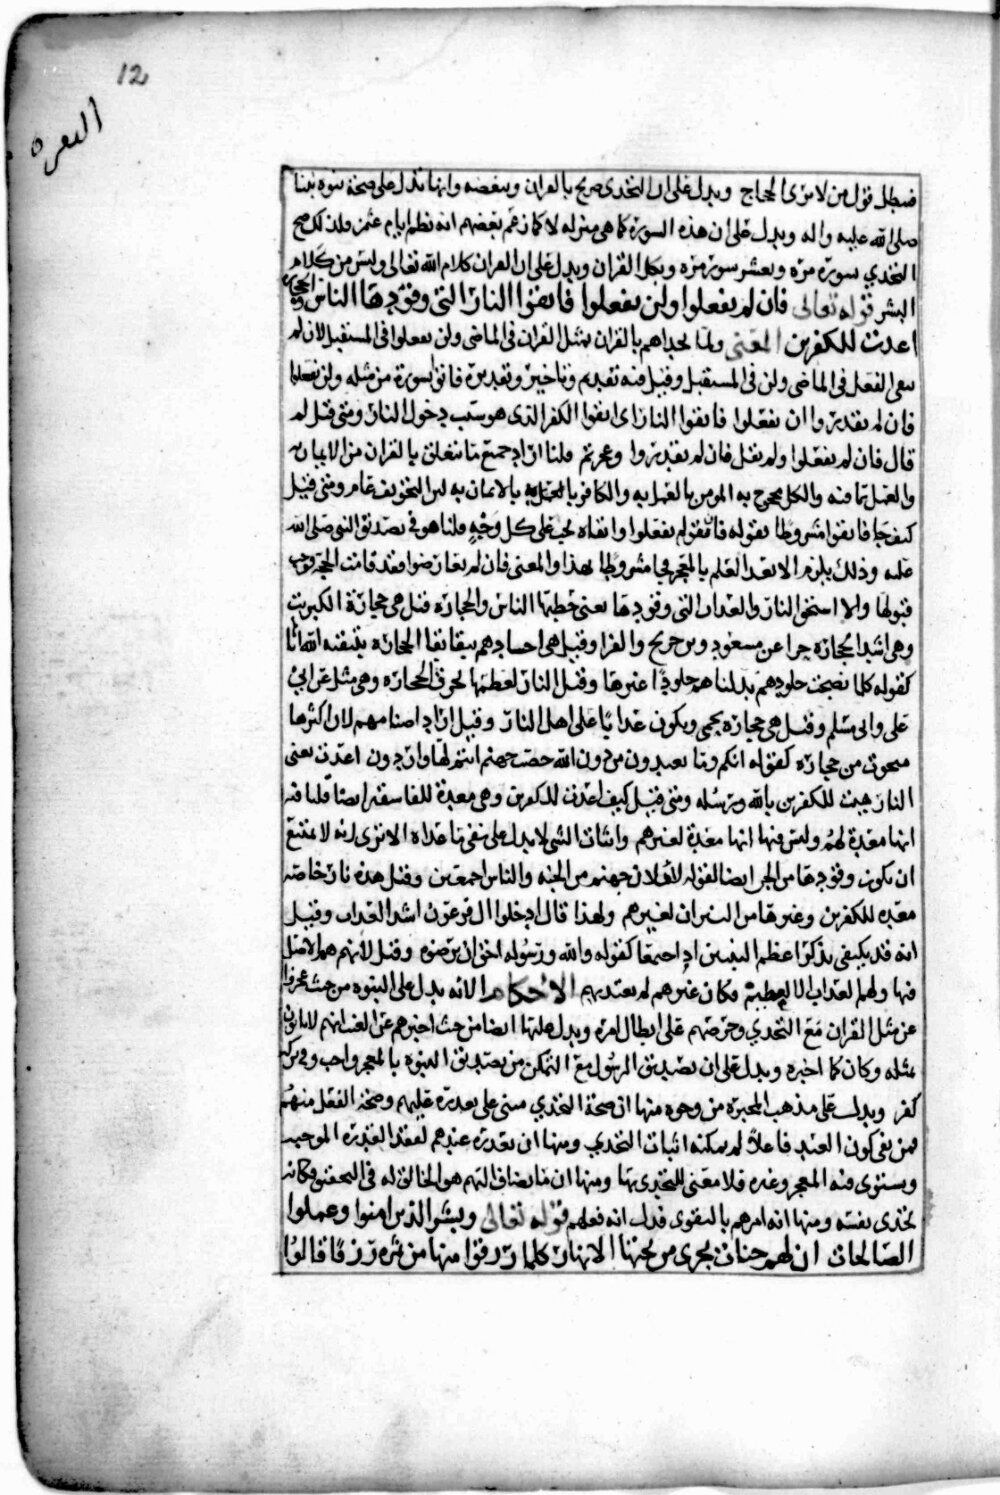 12
البقرة
فبطل قول من لا يرى الحجاج ويدل على ان التحدي صريح بالقران وببعضه وانها تدل على صحة نبوة نبينا
صلى الله عليه واله ويدل على ان هذه السورة كما هي منزله لا كما زعم بعضهم انه نظم ايام عثمن ولذلك صح
التحدي بسورة مره وبعشر سور مره وبكل القران ويدل على ان القران كلام الله تعالى وليس من كلام
البشر قوله تعالى فان لم تفعلوا ولن تفعلوا فاتقوا النار التي وقودها الناس والحجارة
اعدت للكفرين المعنى ولما تحداهم بالقران بمثل القران في الماضي ولن تفعلوا في المستقبل لان لم
نفي الفعل في الماضي ولن في المستقبل وقيل فيه تقديم وتاخير وتقديره فاتوا بسورة من مثله ولن تفعلوا
فان لم تقدروا ان تفعلوا فاتقوا النار اي اتقوا الكفر الذي هو سبب دخول النار ومتى قيل لم
قال فان لم تفعلوا ولم يقل فان لم تقدروا وعجزتم قلنا اراد جميع ما يتعلق بالقران من الايمان به
والعمل بما فيه والكل محجوج به المومن بالعمل به والكافر بالايمان به لان التخويف عام ومتى قيل
كيف جا فاتقوا مشروطا بقوله فان لم تفعلوا واتقاه يجب على كل وجه قلنا هو في تصديق النبي صلى الله
عليه وذلك يلزم الا بعد العلم بالمعجز فجا مشروطا بهذا والمعنى فان لم تعارضوا فقد قامت الحجة فوجب
قبولها والا استحق النار والعذاب التي وقودها يعني حطبها الناس والحجارة قيل هي حجارة الكبريت
وهي اشد الحجارة حرا عن مسعود وبن جريج والفرا وقيل هي احسادهم تبقا بقا الحجارة
كقوله كلما نضجت جلودهم بدلناهم جلودا غيرها وقيل النار لعظمها تحرق الحجارة وهي مثل عن ابي
علي وابي مسلم وقيل هي حجارة تحمى ويكون عذابا على اهل النار وقيل اراد اصنامهم لان اكثرها
منحوت من حجارة كقوله انكم وما تعبدون من دون الله حصب جهنم انتم لها واردون اعدت يعني
النار هيئت للكفرين بالله ورسله ومتى قيل كيف اعدت للكفرين وهي معدة للفاسقين ايضا قلنا فيه
انها معدة لهم وليس فيها انها معدة لغيرهم واثبات الشي لا يدل على نفي ما عداه الا ترى انه لا يمتنع
ان يكون وقودها من الجن ايضا لقوله لأملأن جهنم من الجنة والناس اجمعين وقيل هذه نار خاصة
معده للكفرين وغيرها من النيران لغيرهم ولهذا قال ادخلوا ال فرعون اشد العذاب وقيل
انه قد يكتفى بذكر اعظم اذا اجتمعا كقوله والله ورسوله احق ان يرضوه وقيل لأنهم هم الاصل
فيها ولهم العذاب العظيم فكان غيرهم لم يعتد بهم الاحكام الآية يدل على النبوة من حيث عجزوا
عن مثل القران مع التحدي وحرصهم على ابطال امره ويدل عليها ايضا من حيث اخبرهم عن الغيب انهم لا ياتون
بمثله وكان كما اخبره ويدل على ان تصديق الرسول مع التمكن من تصديق النبوة بالمعجز واجب وفي تركه
كفر ويدل على مذهب المجبرة من وجوه منها ان صحة التحدي مبني على تعذره عليهم وصحة الفعل منهم
فمن نفى كون العبد فاعلا لم يمكنه اثبات التحدي ومنها ان تعذره عندهم لفقد القدرة الموجبة
ويستوي فيه المعجز وغيره فلا معنى للتحدي بها ومنها ان ما يضاف اليهم هو الخالق له في التحقيق فكانه
تحدى نفسه ومنها انه امرهم بالتقوى فدل انه فعلهم قوله تعالى وبشر الذين امنوا وعملوا
الصالحات ان لهم جنات تجري من تحتها الانهار كلما رزقوا منها من ثمره رزقا قالوا